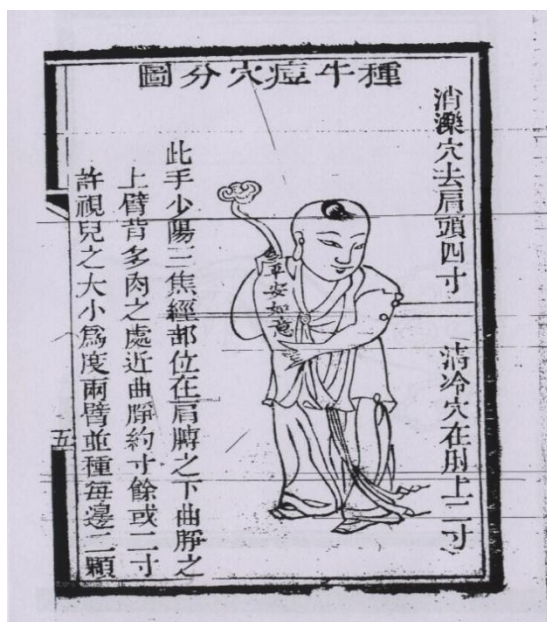 種牛痘穴分圖
消濼穴去肩頭四寸
清冷穴在肘上二寸
平安如意
此手少陽三焦經部位在肩膊之下曲睜之
上臂背多肉之處近曲睜約寸餘或二寸
許視兒之大小爲度兩臂並種每邊二顆
五